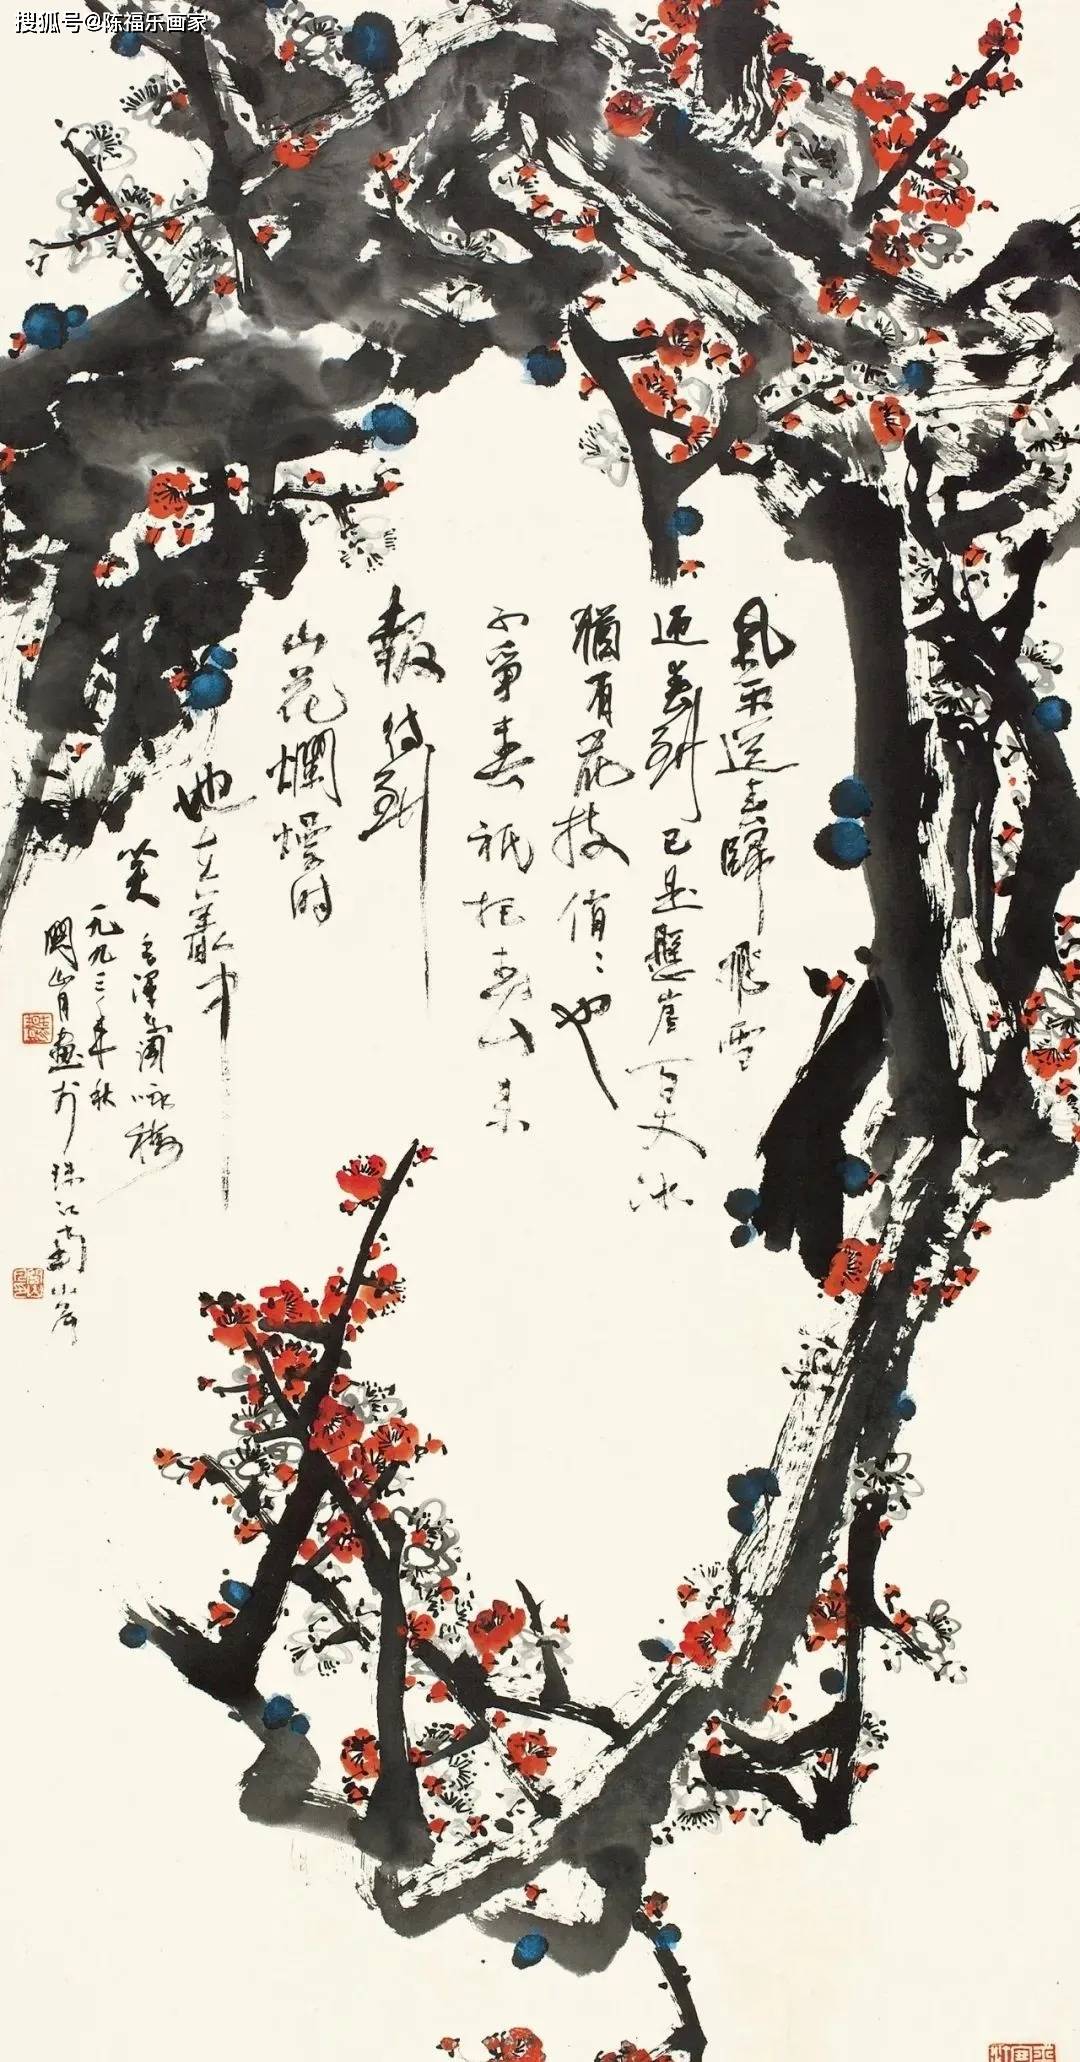 搜狐号@陈福乐画家
風雨送春歸飛雪
迎春到已是懸崖百丈冰
猶有花枝俏〻也
不爭春祇把春來
報待到
山花爛熳時
她在叢中
笑
毛澤東詞詠梅
一九九三年秋
關山月畫於珠江南